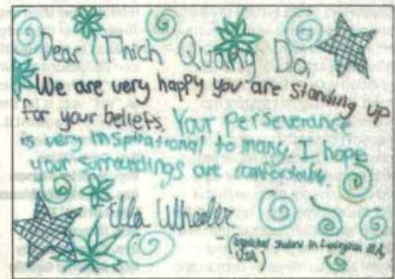 Dear Thich Quang Do,
We are very happy you are standing up
for your beliefs. Your perseverance
is very inspirational to many. I hope
your surroundings are comfortable.
Ella Wheeler
student in Lexington
USA)